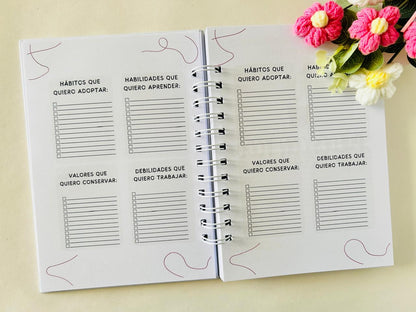 HÁBITOS QUE
QUIERO ADOPTAR:
HABILIDADES QUE
QUIERO APRENDER:
VALORES QUE
QUIERO CONSERVAR:
DEBILIDADES QUE
QUIERO TRABAJAR:
HÁBITOS QUE
QUIERO ADOPTAR:
HABILID
QUIERO A
VALORES QUE
QUIERO CONSERVAR:
DEBILIDADES QUE
QUIERO TRABAJAR: